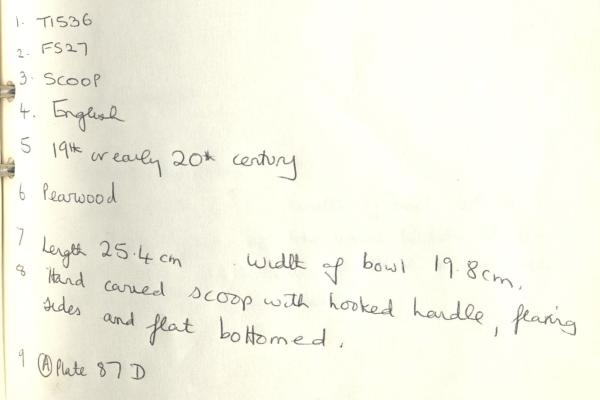 1. T1536
2. FS27
3. SCOOP
4. English
5 19th or early 20th century
6 Pearwood
7 Length 25.4 cm . Width of bowl 19.8cm.
8 Hand carved scoop with hooked handle, flaring
sides and flat bottomed.
9 (A) Plate 87 D